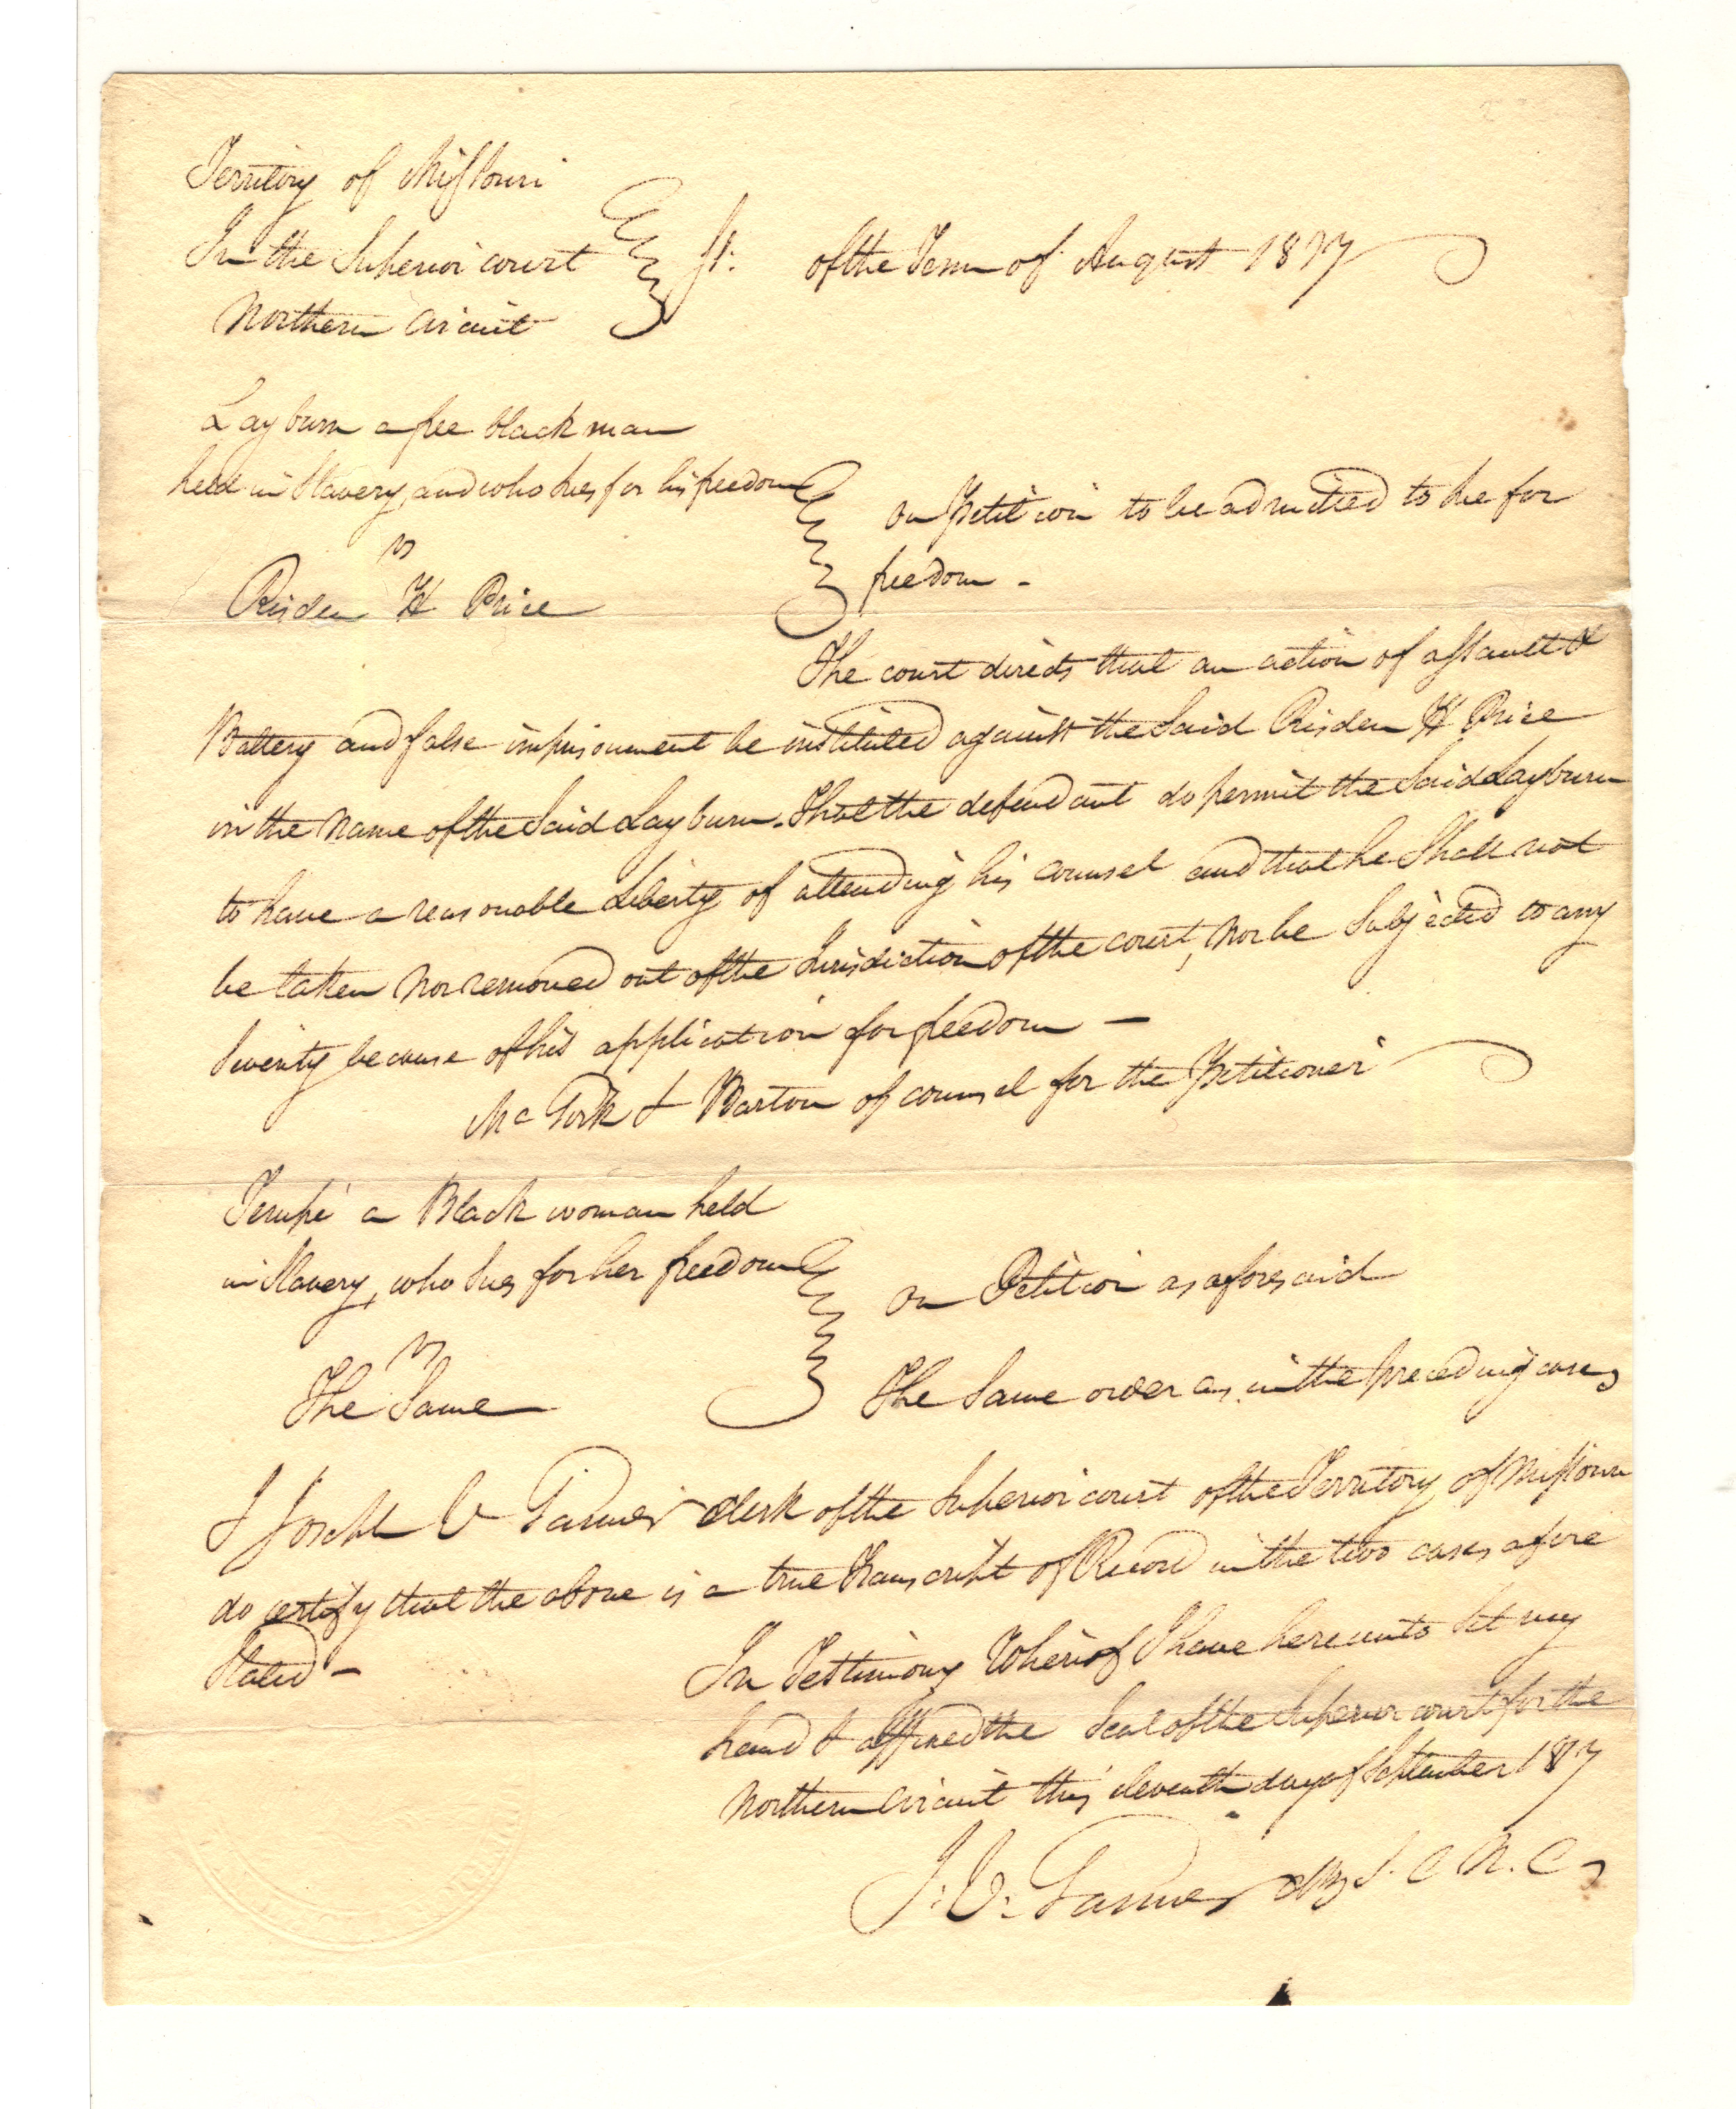 Territory of Missouri
In the Superior court } ss: of the Term of August 1817
Northern Circuit
Layburn a free black man
held in Slavery, and who sues for his freedom
vs
Risden H Price
on Petition to be admitted to sue for
freedom -
The court directs that an action of assault &
Battery and false imprisonment be instituted against the Said Risden H Price
in the name of the Said Layburn. That the defendant do permit the Said Layburn
to have a reasonable Liberty of attending his counsel and that he Shall not
be taken nor removed out of the Jurisdiction of the court, nor be Subjected to any
Severity because of his application for freedom —
McGirk & Barton of counsel for the Petitioner
Tempe a Black woman held
in Slavery, who Sues for her freedom
vs
The Same
on Petition as aforesaid
The Same order as in the preceding case
I Joseph V Garnier clerk of the Superior court of the Territory of Missouri
do certify that the above is a true Transcript of Record in the two cases afore
Stated -
In Testimony Whereof I have hereunto Set my
hand & affixed the Seal of the Superior court for the
Northern Circuit this eleventh day of September 1817
J. V. Garnier clk S. C. N. C